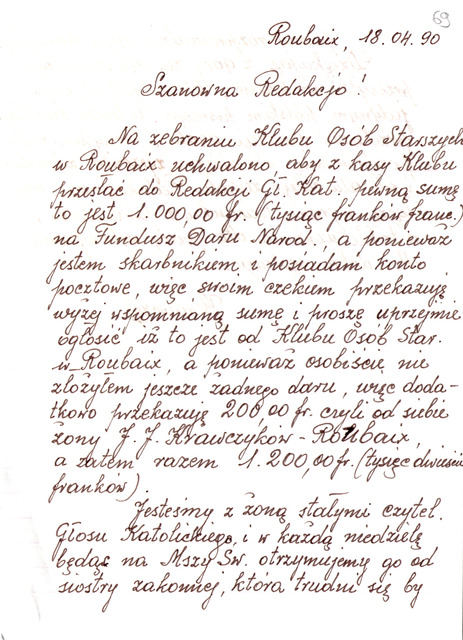 69
Roubaix, 18.04.90
Szanowna Redakcjo!
Na zebraniu Klubu Osób Starszych
w Roubaix uchwalono, aby z kasy Klubu
przesłać do Redakcji Gł. Kat. pewną sumę
to jest 1.000,00 fr. (tysiąc franków franc.)
na Fundusz Daru Narod., a ponieważ
jestem skarbnikiem i posiadam konto
pocztowe, więc swoim czekiem przekazuję
wyżej wspomnianą sumę i proszę uprzejmie
ogłosić iż to jest od Klubu Osób Star.
w Roubaix, a ponieważ osobiście nie
złożyłem jeszcze żadnego daru, więc doda-
tkowo przekazuję 200,00 fr. czyli od siebie
żony J. J. Krawczyków - Roubaix,
a zatem razem 1.200,00 fr. (tysiąc dwieście
franków)
Jesteśmy z żoną stałymi czytel.
Głosu Katolickiego, i w każdą niedzielę
będąc na Mszy Św. otrzymujemy go od
siostry zakonnej, która trudni się by